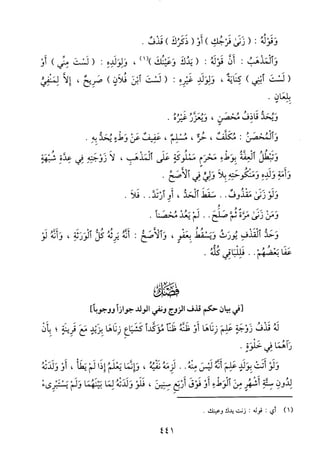 وَقَوْلُهُ : ( زَنَىٰ فَرْجُكِ ) أَوْ ( ذَكَرُكَ ) قَذْفٌ .
وَالْمَذْهَبُ : أَنَّ قَوْلَهُ : ( يَدُكَ وَعَيْنُكَ )(١) ، وَلِوَلَدِهِ : ( لَسْتَ مِنِّي ) أَوْ
( لَسْتَ ٱبْنِي ) كِنَايَةٌ ، وَلِوَلَدِ غَيْرِهِ : ( لَسْتَ ٱبْنَ فُلَانٍ ) صَرِيحٌ ، إِلَّا لِمَنْفِيٍّ
بِلِعَانٍ .
وَيُحَدُّ قَاذِفُ مُحْصَنٍ ، وَيُعَزَّرُ غَيْرُهُ .
وَالْمُحْصَنُ : مُكَلَّفٌ ، حُرٌّ ، مُسْلِمٌ ، عَفِيفٌ عَنْ وَطْءٍ يُحَدُّ بِهِ .
وَتَبْطُلُ الْعِفَّةُ بِوَطْءِ مَحْرَمٍ مَمْلُوكَةٍ عَلَى الْمَذْهَبِ ، لَا زَوْجَتِهِ فِي عِدَّةِ شُبْهَةٍ
وَأَمَةِ وَلَدِهِ وَمَنْكُوحَتِهِ بِلَا وَلِيٍّ فِي الْأَصَحِّ .
وَلَوْ زَنَىٰ مَقْذُوفٌ .. سَقَطَ الْحَدُّ ، أَوِ ٱرْتَدَّ .. فَلَا .
وَمَنْ زَنَىٰ مَرَّةً ثُمَّ صَلَحَ .. لَمْ يَعُدْ مُحْصَناً .
وَحَدُّ الْقَذْفِ يُورَثُ وَيَسْقُطُ بِعَفْوٍ ، وَالْأَصَحُّ : أَنَّهُ يَرِثُهُ كُلُّ الْوَرَثَةِ ، وَأَنَّهُ لَوْ
عَفَا بَعْضُهُمْ .. فَلِلْبَاقِي كُلُّهُ .
فَصْلٌ
[في بيان حكم قذف الزوج ونفي الولد جوازاً ووجوباً]
لَهُ قَذْفُ زَوْجَةٍ عَلِمَ زِنَاهَا أَوْ ظَنَّهُ ظَنّاً مُؤَكَّداً كَشَيَاعِ زِنَاهَا بِزَيْدٍ مَعَ قَرِينَةٍ ؛ بِأَنْ
رَآهُمَا فِي خَلْوَةٍ .
وَلَوْ أَتَتْ بِوَلَدٍ عَلِمَ أَنَّهُ لَيْسَ مِنْهُ .. لَزِمَهُ نَفْيُهُ ، وَإِنَّمَا يَعْلَمُ إِذَا لَمْ يَطَأْ ، أَوْ وَلَدَتْهُ
لِدُونِ سِتَّةِ أَشْهُرٍ مِنَ الْوَطْءِ أَوْ فَوْقَ أَرْبَعِ سِنِينَ ، فَلَوْ وَلَدَتْهُ لِمَا بَيْنَهُمَا وَلَمْ يَسْتَبْرِىءْ
(١) أي : قوله : زنت يدك وعينك .
٤٤١